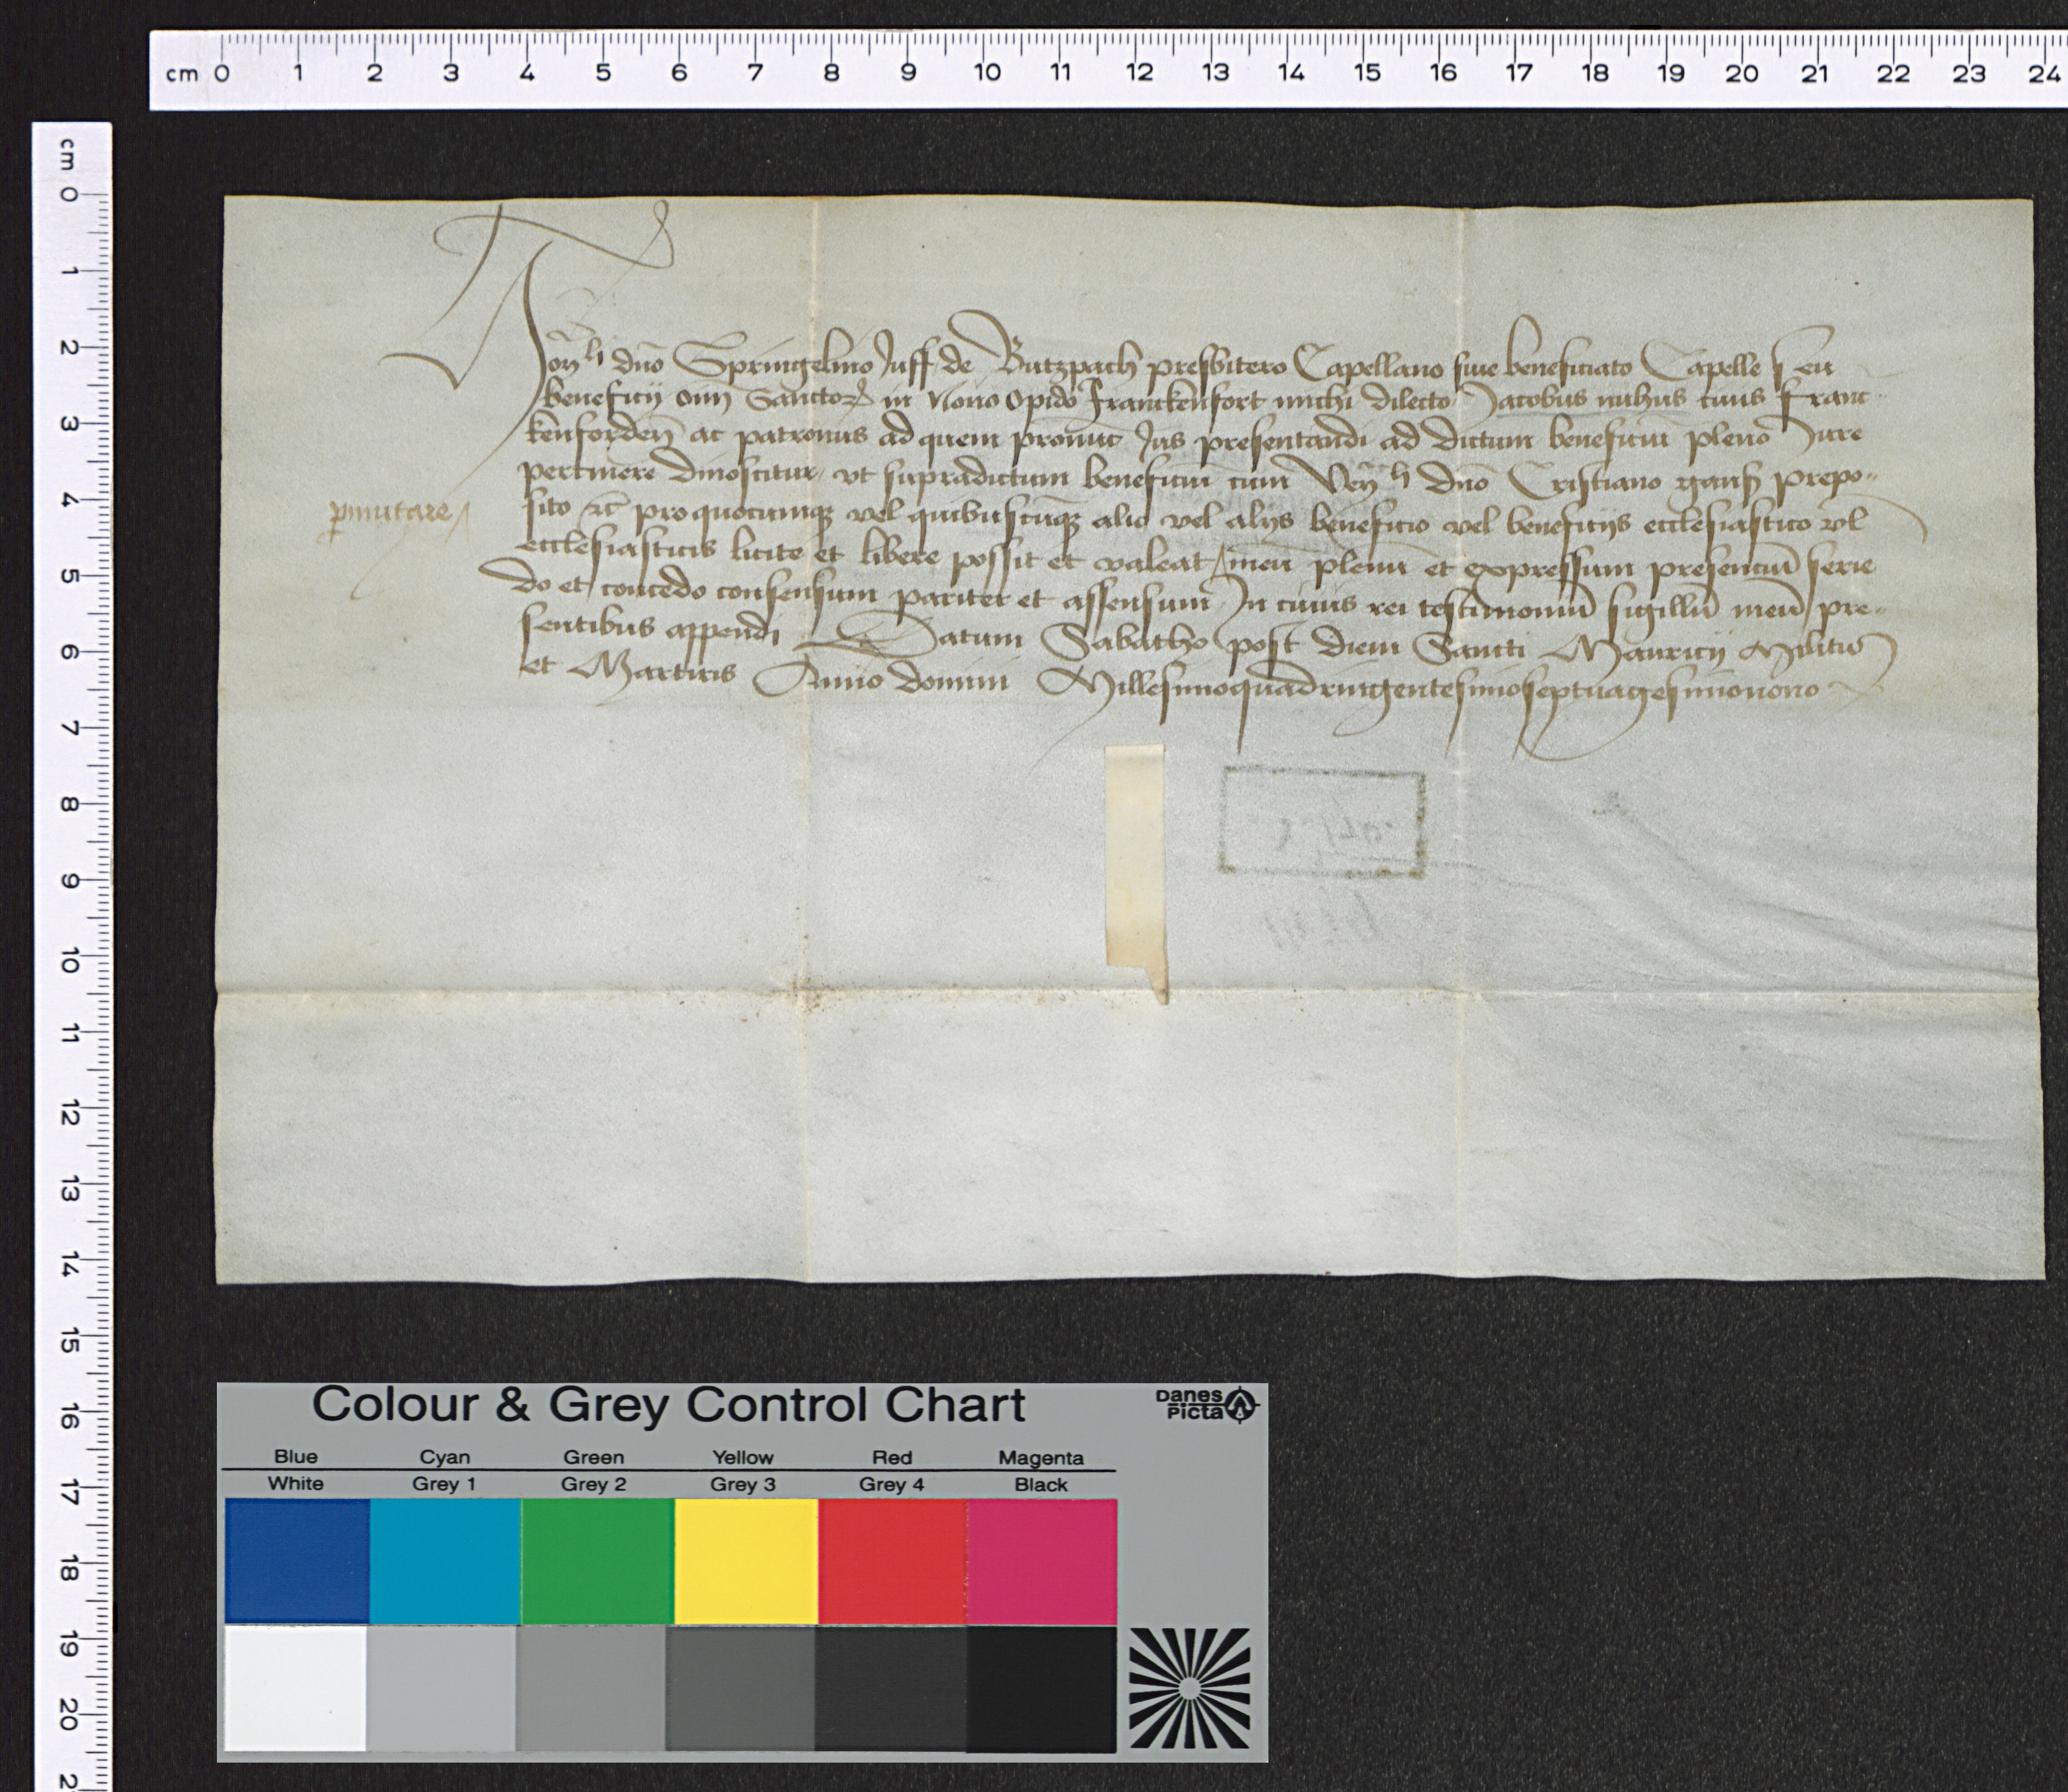 cm 0 1 2 3 4 5 6 7 8 9 10 11 12 13 14 15 16 17 18 19 20 21 22 23 24
cm 0 1 2 3 4 5 6 7 8 9 10 11 12 13 14 15 16 17 18 19 20 2
dno Springelino Juff de Butzpach presbitero Capellano siue beneficiato Capelle seu
beneficij oīm Sanctoꝝ in Nouo opido Franckenfort michi dilecto Jacobus ciuis Franc-
kenforden̄ ac patronus ad quem Jus presentandi ad dictum beneficiū pleno Jure
pertinere dinoscitur vt supradictum beneficiū cum dno Cristiano gans prepo-
sito ⁊c̄ pro quocumqꝫ vel quibuscūqꝫ alio vel alijs beneficio vel beneficijs ecclesiastico vl
permutare
ecclesiasticis licite et libere possit et valeat meū plenū et expressum presenciū serie
do et concedo consensum pariter et assensum In cuius rei testimoniū sigillū meū pre-
sentibus appendi Datum Sabatho post diem Sancti Mauricij Militis
et Martiris Anno domini Millesimoquadringentesimoseptuagesimonono
Colour & Grey Control Chart
Danes
Picta
Blue Cyan Green Yellow Red Magenta
White Grey 1 Grey 2 Grey 3 Grey 4 Black